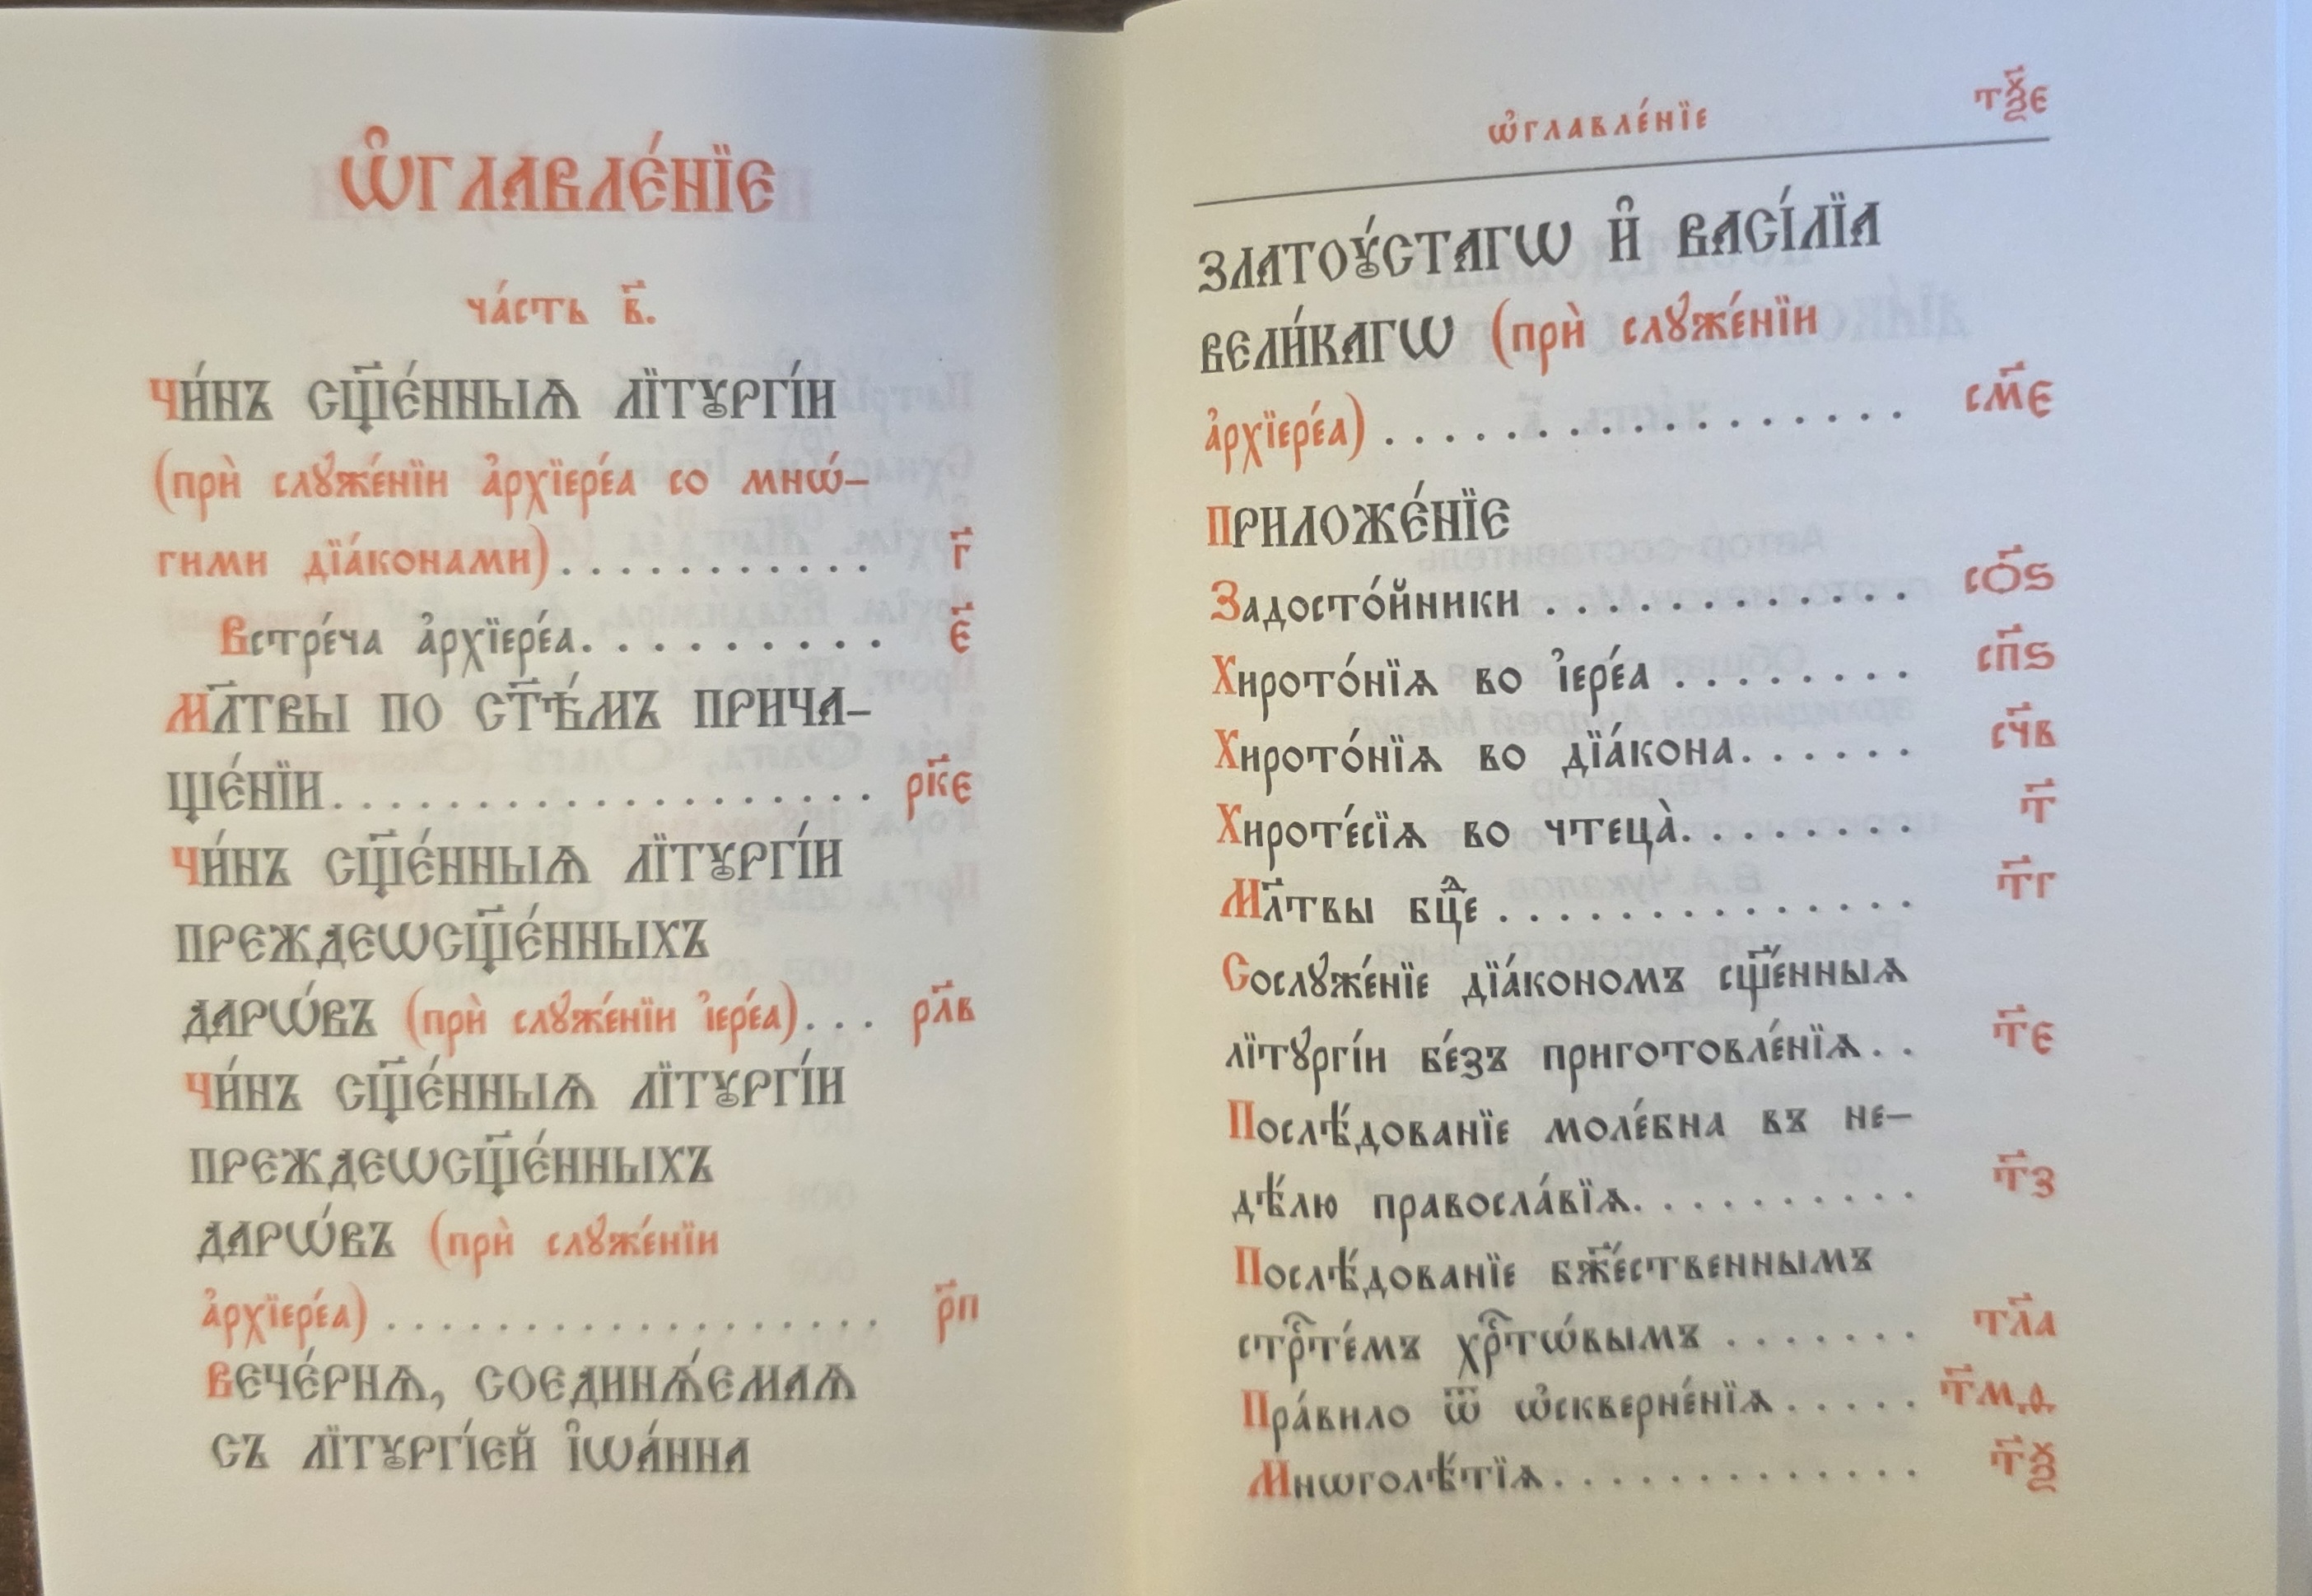 Ѡ҆главле́нїе
ча́сть в҃.
Чи́нъ сщ҃е́нныѧ лїтꙋргі́и
(прѝ слꙋже́нїи а҆рхїере́а со мнѡ́-
гими дїа́конами)........... г҃
Встре́ча а҆рхїере́а......... є҃
Мл҃твы по ст҃ѣ́мъ прича-
ще́нїи................... рк҃є
Чи́нъ сщ҃е́нныѧ лїтꙋргі́и
преждеѡсщ҃е́нныхъ
дарѡ́въ (прѝ слꙋже́нїи і҆ере́а)... рл҃в
Чи́нъ сщ҃е́нныѧ лїтꙋргі́и
преждеѡсщ҃е́нныхъ
дарѡ́въ (прѝ слꙋже́нїи
а҆рхїере́а) .................. р҃п
Вече́рнѧ, соединѧ́емаѧ
съ лїтꙋргі́ей і҆ѡа́нна
ѡ҆главле́нїе тѯ҃є
златоꙋ́стагѡ и҆ васі́лїа
вели́кагѡ (прѝ слꙋже́нїи
а҆рхїере́а) ................. см҃є
Приложе́нїе
Задосто́йники ............. со҃ѕ
Хирото́нїѧ во і҆ере́а ........ сп҃ѕ
Хирото́нїѧ во дїа́кона...... сч҃в
Хироте́сїѧ во чтеца̀........ т҃
Мл҃твы бцⷣе .............. т҃г
Сослꙋже́нїе дїа́кономъ сщ҃е́нныѧ
лїтꙋргі́и бе́зъ приготовле́нїѧ.. т҃є
Послѣ́дованїе моле́бна въ не-
дѣ́лю правосла́вїѧ.......... т҃з
Послѣ́дованїе бж҃е́ственнымъ
стрⷭ҇те́мъ хрⷭ҇тѡ́вымъ ....... тл҃а
Пра́вило ѿ ѡ҆скверне́нїѧ..... т҃м.д.
Мнѡголѣ́тїѧ............. т҃ѯ